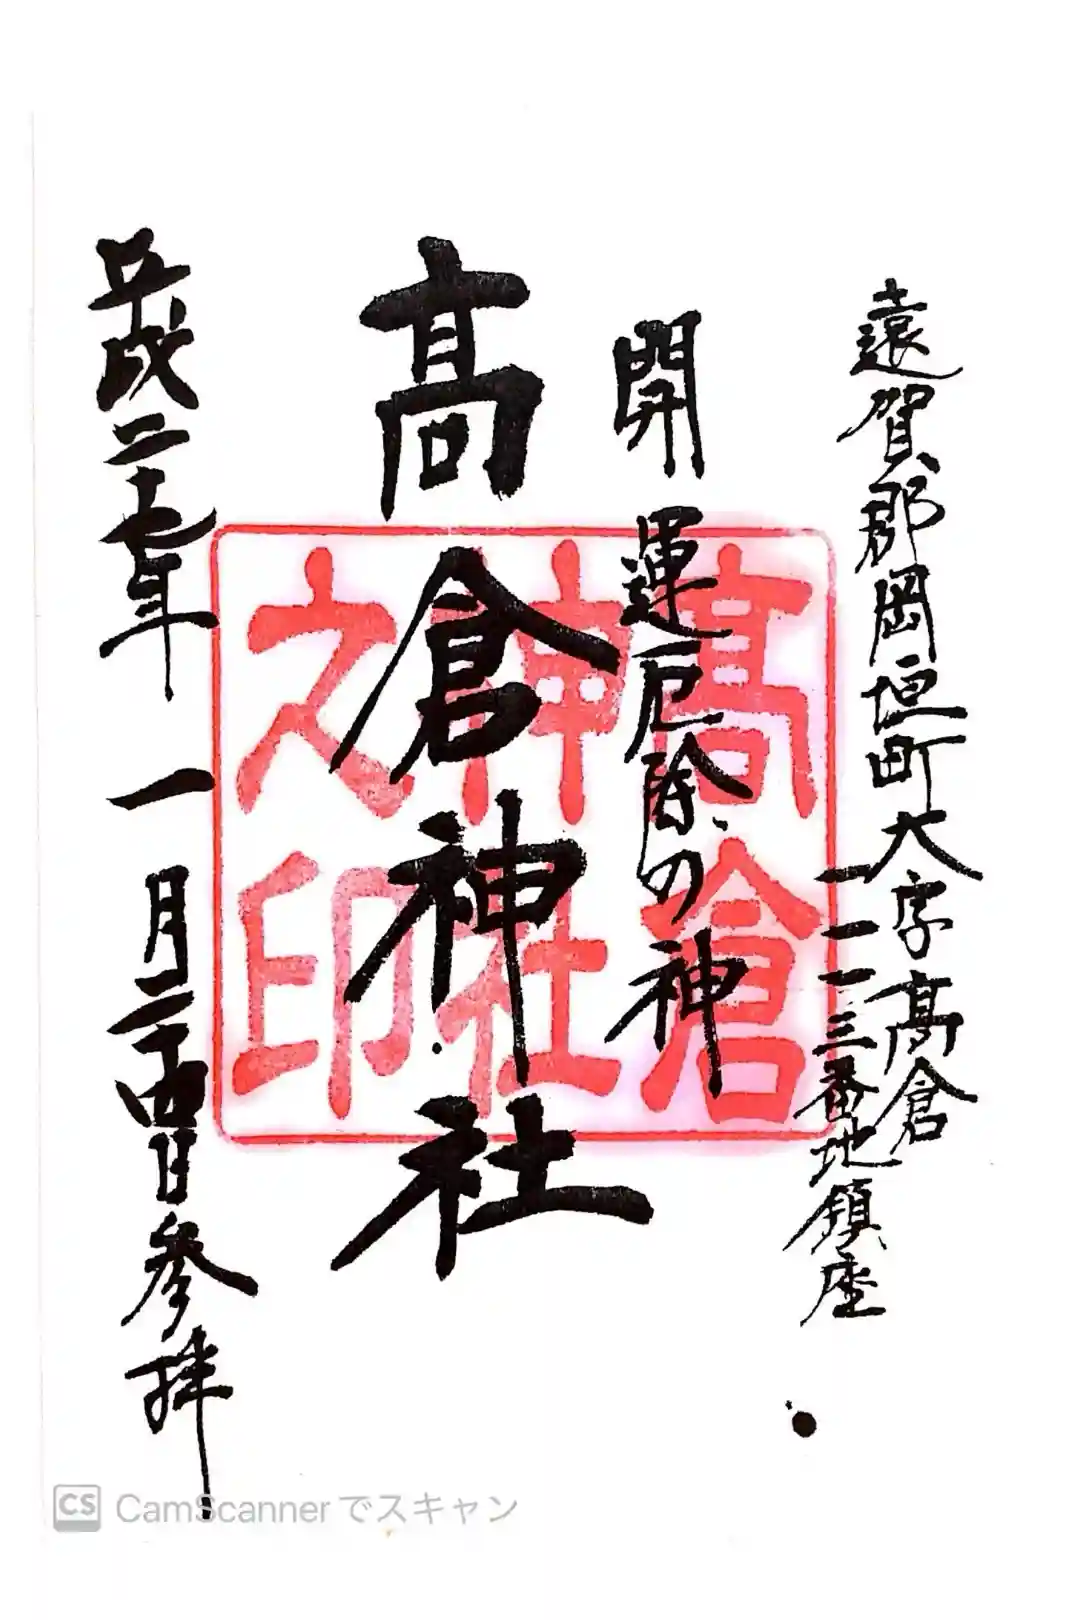 遠賀郡岡垣町大字髙倉
一一一三番地鎮座
開運厄除の神
髙倉神社
平成二十七年 一月二十四日参拝
髙倉
神社
之印
CS CamScannerでスキャン